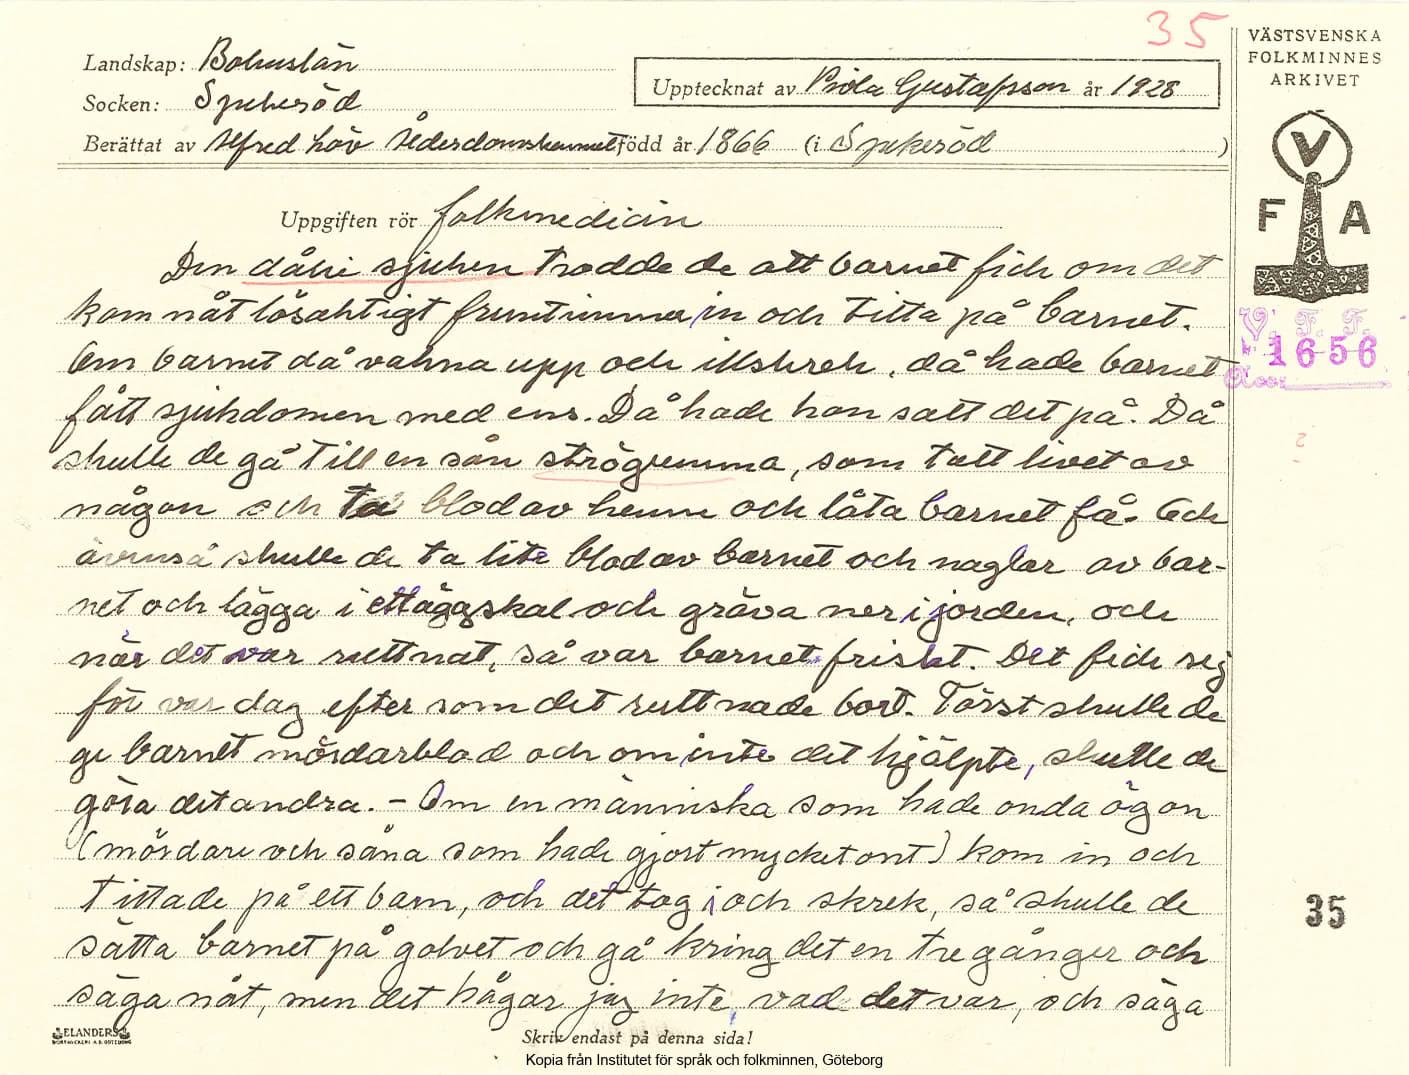 35
Landskap: Bohuslän
Socken: Spekeröd
Upptecknat av Viola Gustafsson år 1928
Berättat av Alfred Löv Ålderdomshemmet född år 1866 (i Spekeröd )
VÄSTSVENSKA
FOLKMINNES
ARKIVET
V
F A
Uppgiften rör folkmedicin
Den dålie sjuken trodde de att barnet fick om det
kom nåt lösaktigt fruntimmer in och titta på barnet.
Om barnet då vakna upp och illskrek, då hade barnet
fått sjukdomen med ens. Då hade hon satt det på. Då
skulle de gå till en sån strögumma, som tatt livet av
någon och ta blod av henne och låta barnet få. Och
ävenså skulle de ta lite blod av barnet och naglar av bar-
net och lägga i ett äggskal och gräva ner i jorden, och
när det var ruttnat, så var barnet friskt. Det fick sig
för var dag efter som det ruttnade bort. Först skulle de
ge barnet mördarblod och om inte det hjälpte, skulle de
göra det andra. - Om en människa som hade onda ögon
(mördare och såna som hade gjort mycket ont) kom in och
tittade på ett barn, och det tog i och skrek, så skulle de
sätta barnet på golvet och gå kring det en tre gånger och
säga nåt, men det hågar jag inte, vad det var, och säga
V. F. F.
1656
?
35
ELANDERS
BOKTRYCKERI A.B. GÖTEBORG
Skriv endast på denna sida!
Kopia från Institutet för språk och folkminnen, Göteborg